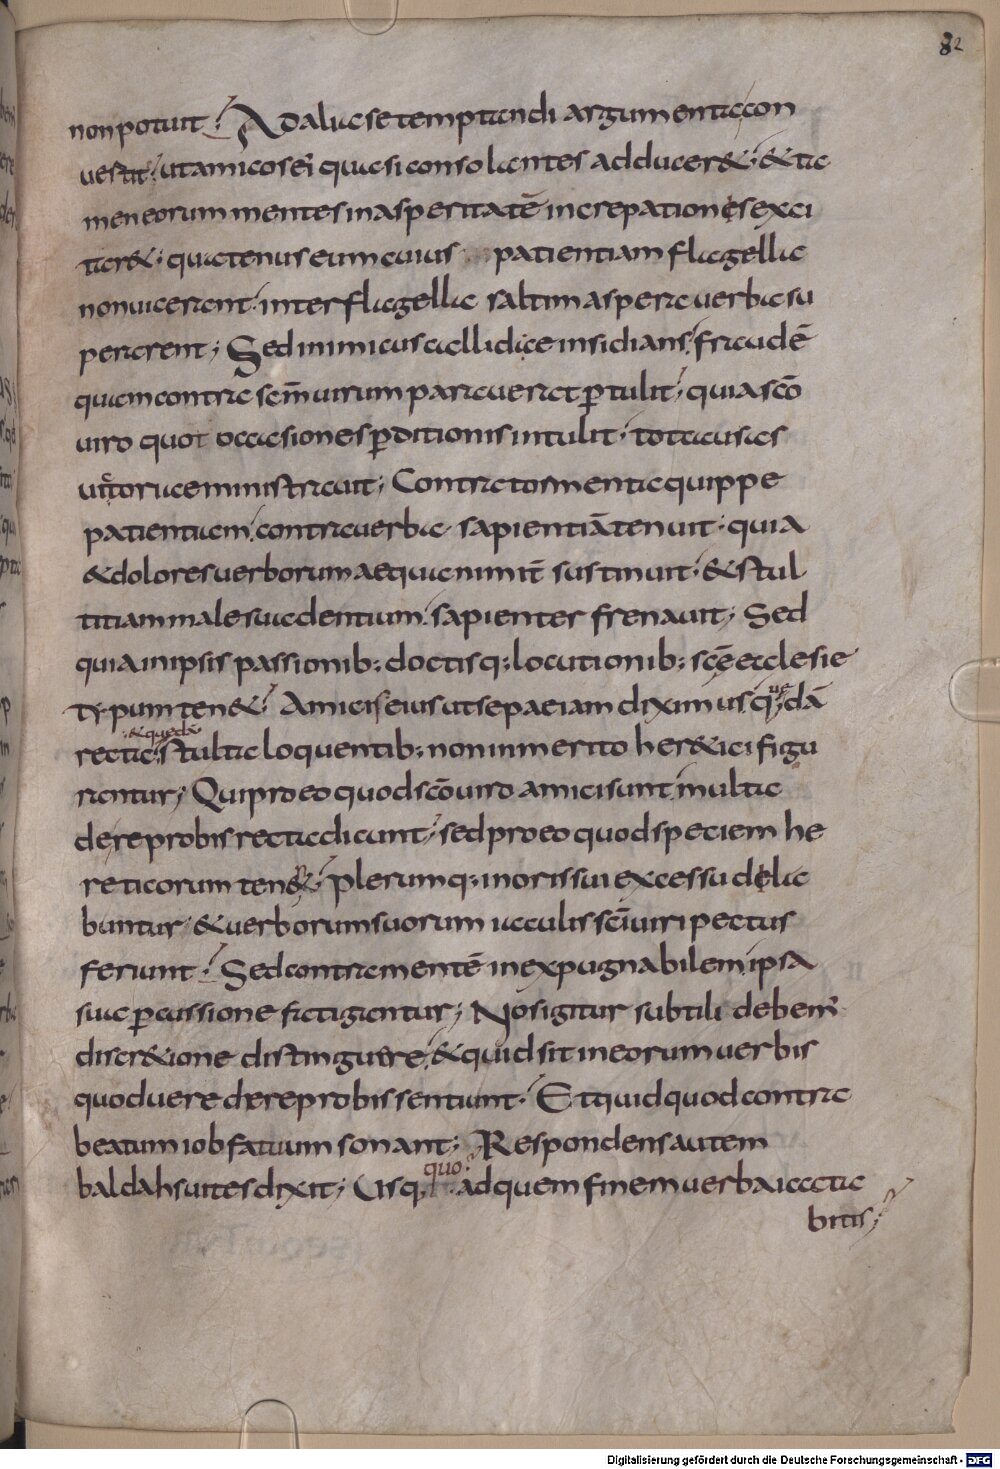 82
non potuit; Ad aliase temptandi argumenta con
uertit; ut amicos ei quasi consolantes adduceret; & ta
men eorum mentes in asperitatē increpationis exci
taret; quatenus eum cuius patientiam flagella
non uicerant; inter flagella saltim aspera uerba su
perarent; Sed inimicus callidae insidians fraudē
quam contra scm̄ uirum parauerat ꝑtulit; quia scō
uiro quot occasiones ꝑditionis intulit; tot causas
uictoriae ministrauit; Contra tormenta quippe
patientiam; contra uerba sapientiā tenuit; quia
& dolores uerborum aequanimit̄ sustinuit; & stul
titiam male suadentium sapienter frenauit; Sed
quia in ipsis passionib; doctisq; locutionib; scę ecclesie
typum ten&; Amici eius ut sepae iam diximus quedā
recta & quedā stulta loquentib; non inmerito her&ici figu
rantur; Qui pro eo quod scō uiro amici sunt multa
de reprobis recta dicunt; sed pro eo quod speciem he
reticorum tenent; plerumq; in oris sui excessu dela
buntur; & uerborum suorum iaculis sc̄i uiri pectus
feriunt; Sed contra mentē inexpugnabilem ipsa
sua ꝑcussione fatigantur; Nos igitur subtili debem'
discr&ione distinguere; & quid sit in eorum uerbis
quod uere de reprobis sentiunt; Et quid quod contra
beatum iob fatuum sonant; Respondens autem
baldahsuites dixit; Usq; quo ad quem finem uerba iacta
bitis;
Digitalisierung gefördert durch die Deutsche Forschungsgemeinschaft - DFG